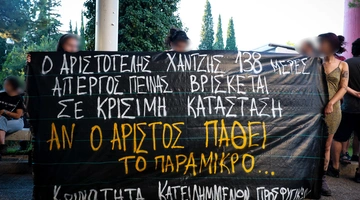 Ο ΑΡΙΣΤΟΤΕΛΗΣ ΧΑΝΤΖΗΣ 138 ΜΕΡΕΣ
ΑΠΕΡΓΟΣ ΠΕΙΝΑΣ ΒΡΙΣΚΕΤΑΙ
ΣΕ ΚΡΙΣΙΜΗ ΚΑΤΑΣΤΑΣΗ
ΑΝ Ο ΑΡΙΣΤΟΣ ΠΑΘΕΙ
ΤΟ ΠΑΡΑΜΙΚΡΟ...
ΚΟΙΝΟΤΗΤΑ ΚΑΤΕΙΛΗΜΜΕΝΩΝ ΠΡΟΣΦΥΓΙΚΩΝ